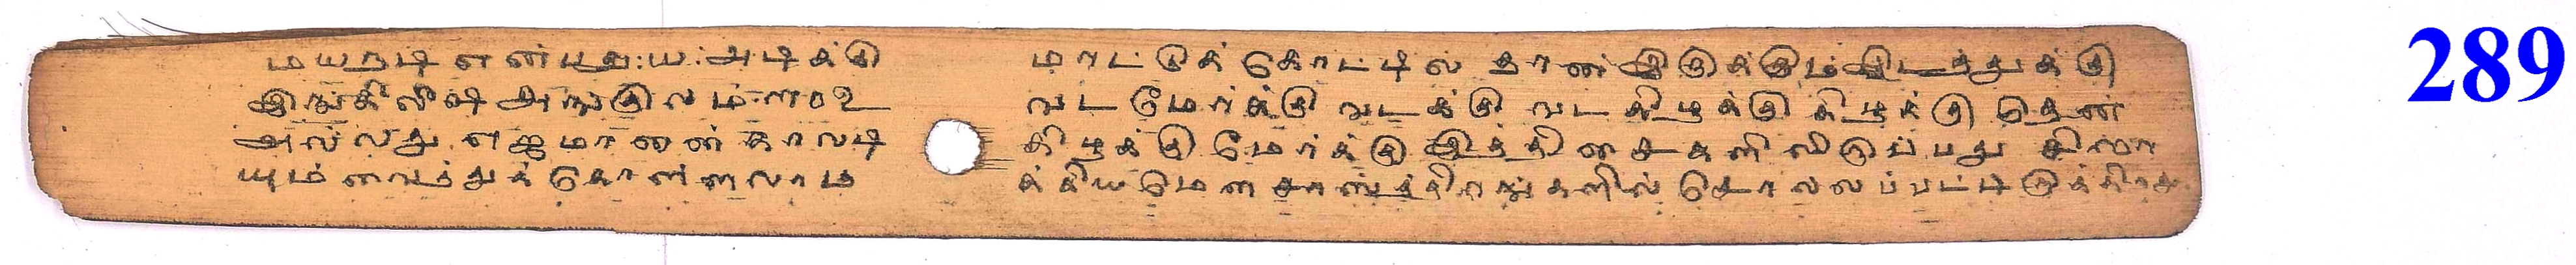 மயநடி என்பது: ய: அடிக்கு
இங்கிலீஷ் அங்குலம் ௩௦௨
அல்லது எஜமானன் காலடி
யும் வைத்துக் கொள்ளலாம்
மாட்டுக் கொட்டில் தான் இருக்கும் இடத்துக்கு
வடமேற்க்கு வடக்கு வடகிழக்கு கிழக்கு தென்
கிழக்கு மேற்க்கு இத்திசைகளிலிருப்பது சிலா
க்கியமென சாஸ்த்திரங்களில் சொல்லப்பட்டிருக்கிறது
289